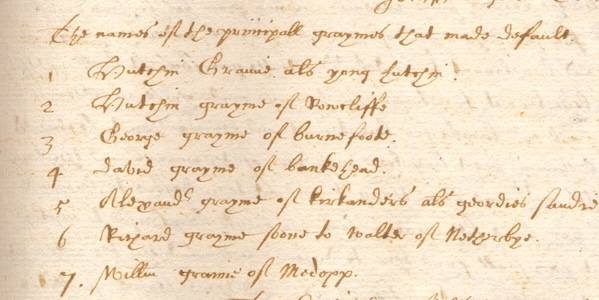 The names of the principall graymes that made default.
1 Hutchin Grame als yong hutchin.
2 Hutchin grayme of Roncliffe
3 George grayme of burnefoote.
4 david grayme of bankehead.
5 Alexandr grayme of kirkanders als geordies sandie
6 Richard grayme sonne to walter of Netherbye.
7. Willm grame of Medopp.